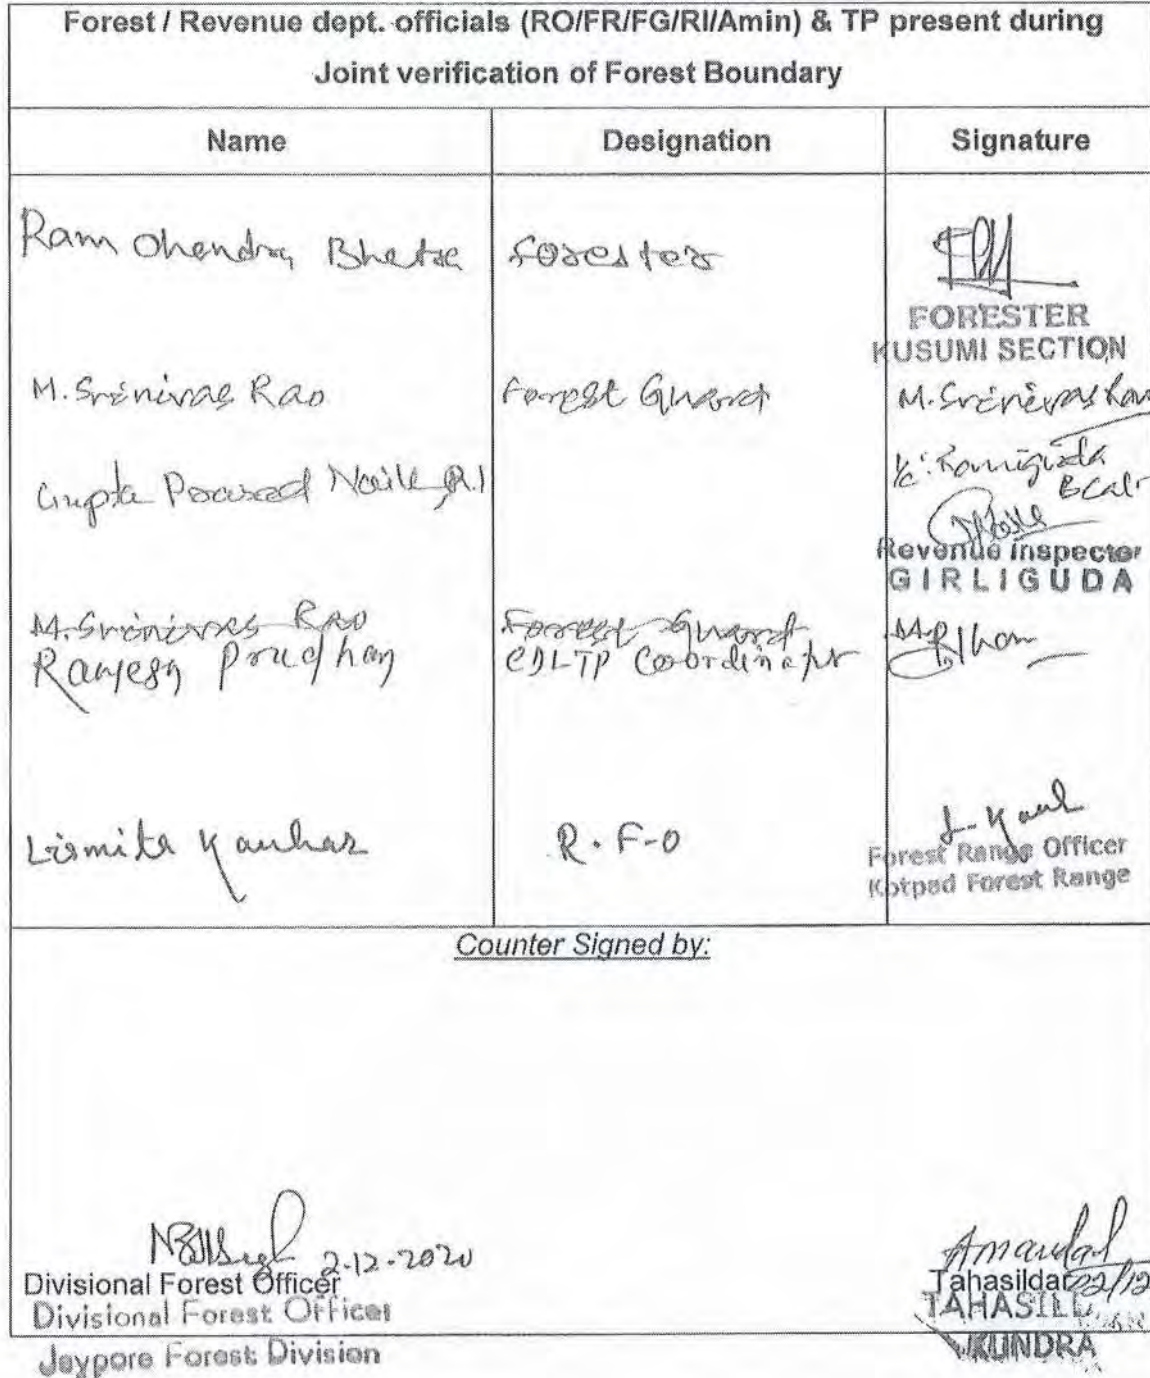 Forest / Revenue dept. officials (RO/FR/FG/RI/Amin) & TP present during
Joint verification of Forest Boundary
Name Designation Signature
Ram Chandra Bhatra Forester
FORESTER
KUSUMI SECTION
M. Srinivas Rao Forest Guard M. Srinivas Rao
Gupta Prasad Naik, R.I
Revenue Inspector
GIRLIGUDA
M. Srinivas Rao Forest Guard
Ranjesh Pradhan Coordinator
Lismita Kanhar R.F-O
Forest Range Officer
Kotpad Forest Range
Counter Signed by:
2-12-2020
Divisional Forest Officer
Tahasildar 22/12
Divisional Forest Officer
TAHASILD
Jeypore Forest Division
KUNDRA